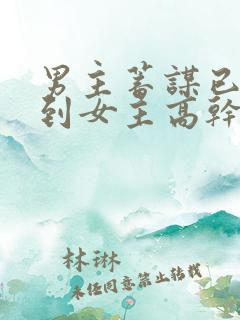 男主蓄謀已
到女主高幹
林琳
未经同意禁止转载